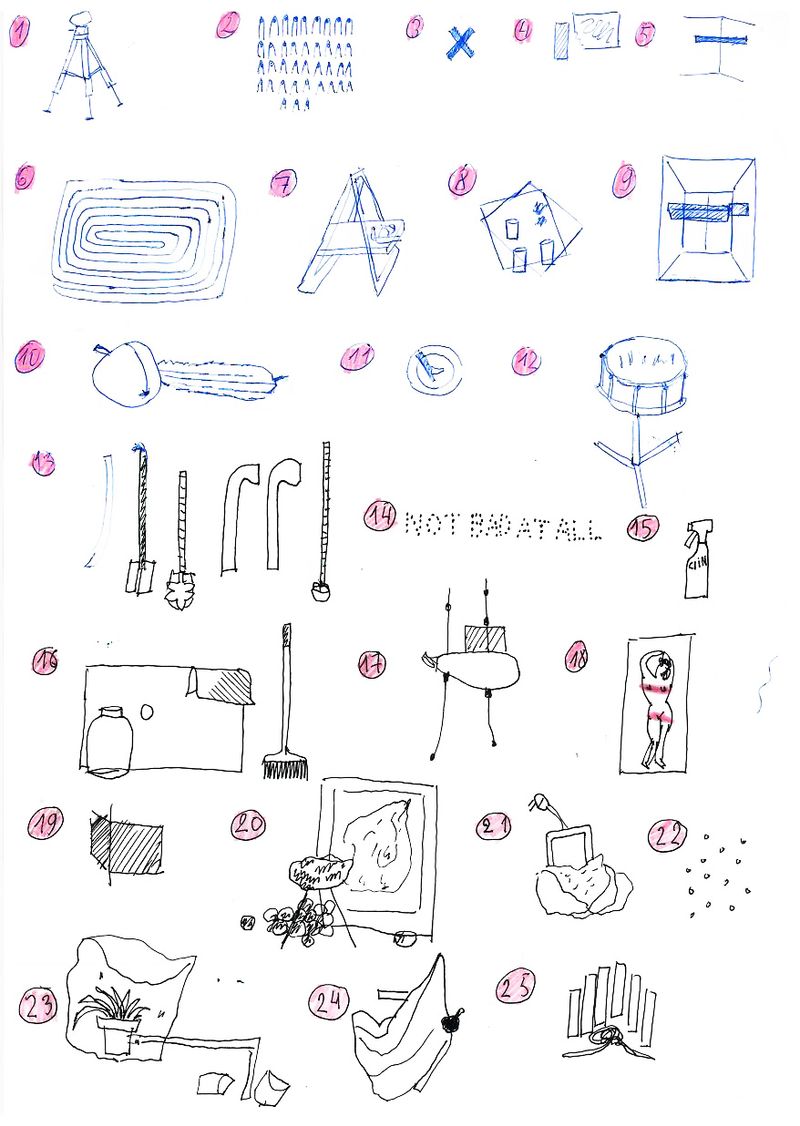 1
2
3
4
5
6
7
8
9
10
11
12
13
14
NOT BAD AT ALL
15
CliN
16
17
18
19
20
21
22
23
24
25